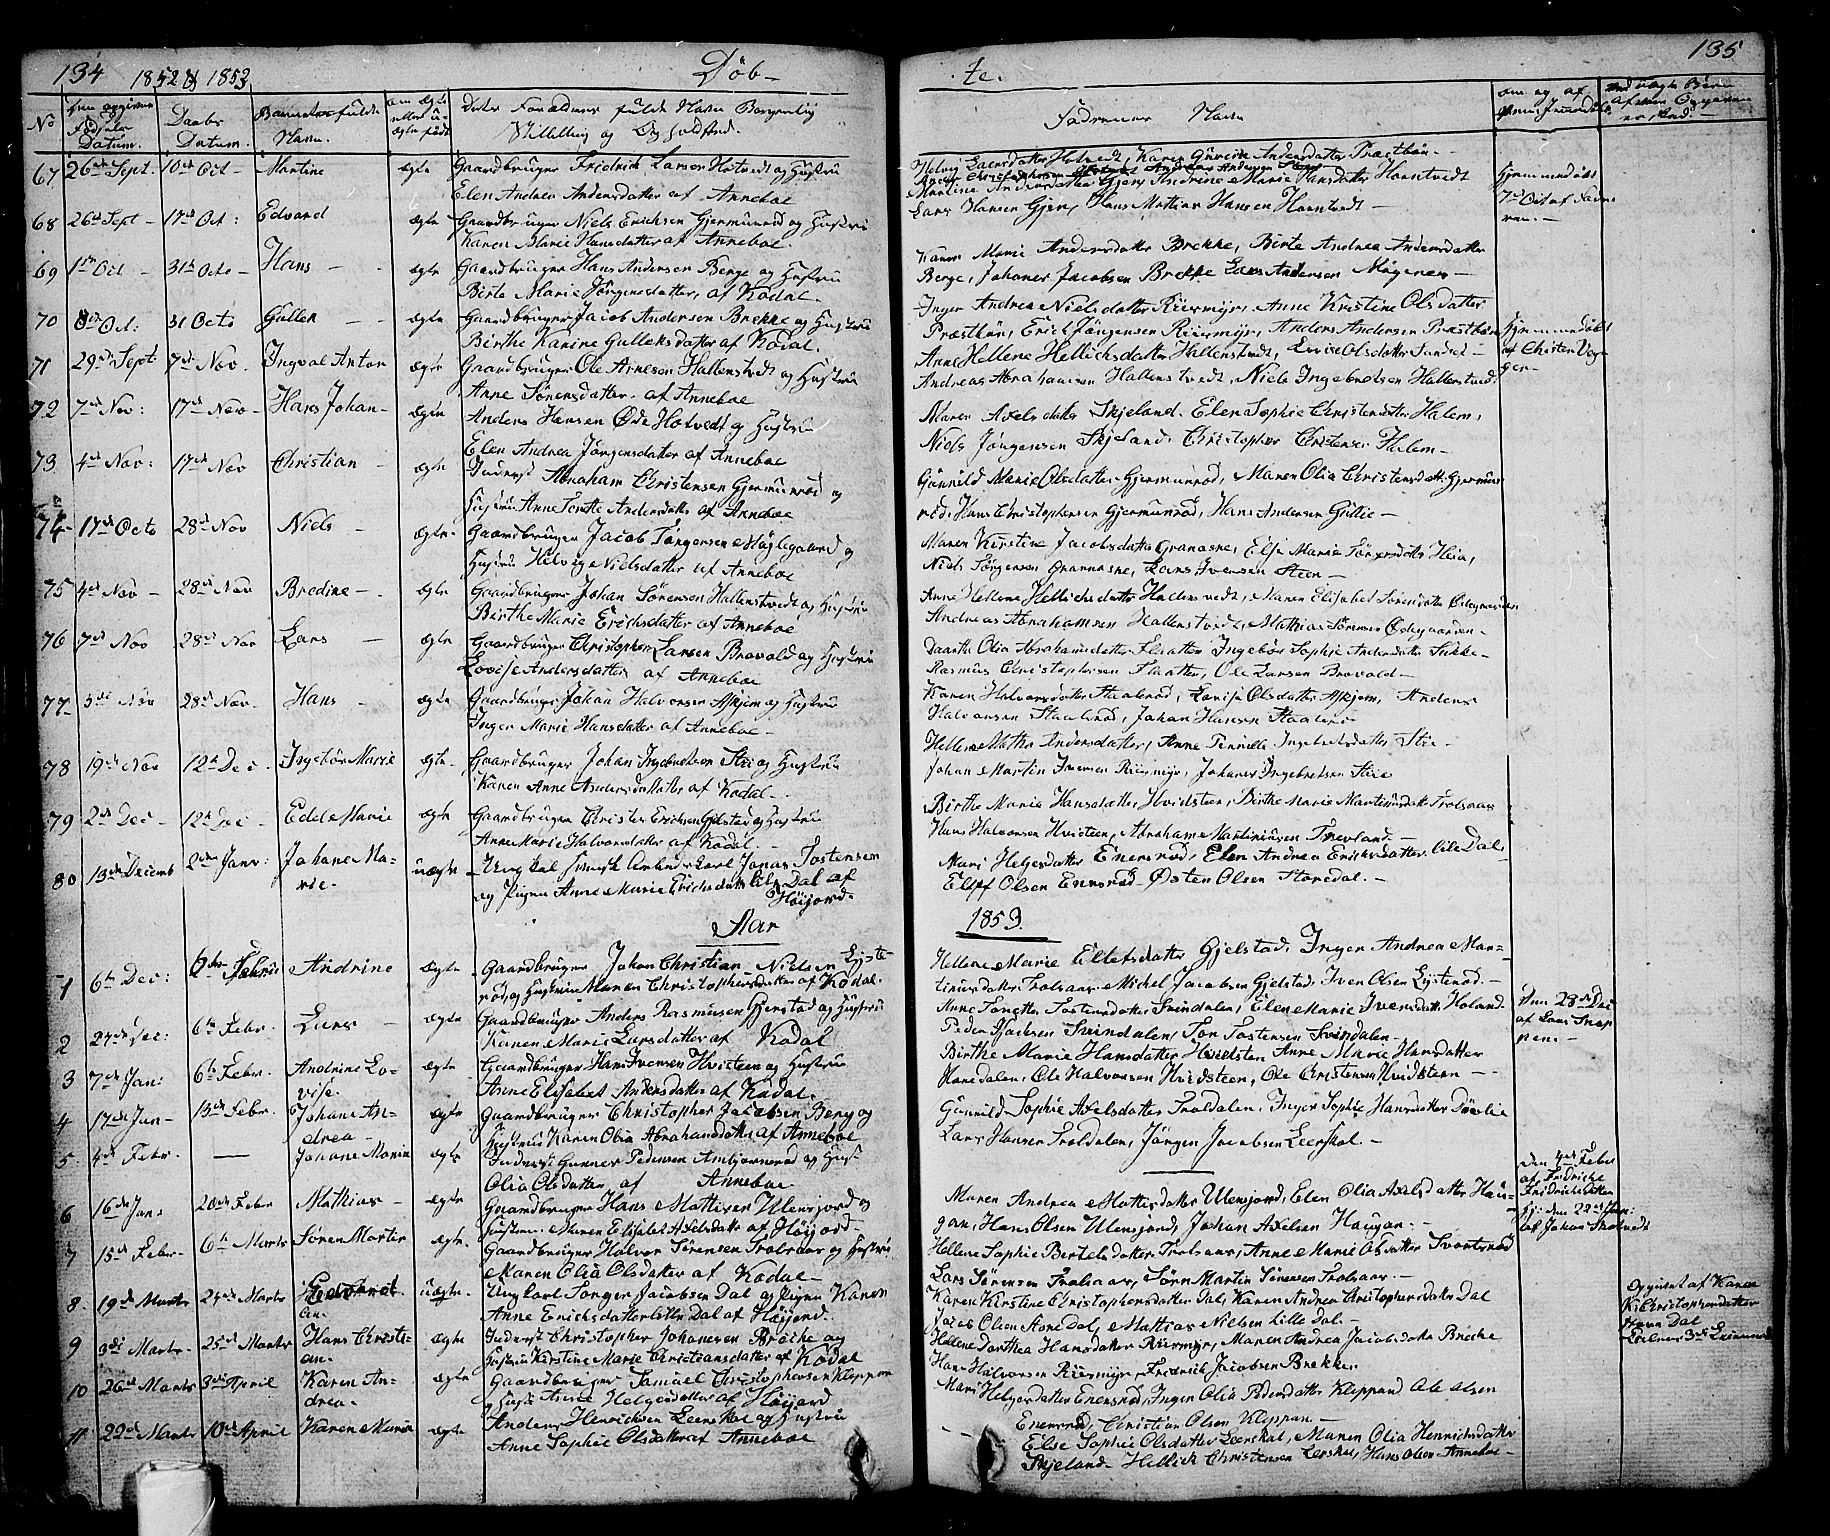 134 1852 & 1853 Døb-
No Den opgivne Fødsels Datum. Daabs Datum. Barnets fulde Navn. om Ægte eller uægte født Dets Forældres fulde Navn Borgerlig Stilling og Opholdsted.
67 26de Sept. 10de Oct - Martine ægte Gaardbruger Fredrich Larsen Hotvedt og Hustru
Elen Andrea Andersdatter af Anneboe
68 26de Sept - 17de Oct: Edvard ægte Gaardbruger Niels Erichsen Gjermunrød og Hustru
Karen Marie Hansdatter af Anneboe.
69 1ste Oct - 31te Octo - Hans - ægte Gaardbruger Hans Andersen Berge og Hustru
Birte Marie Jørgensdatter, af Kodal.
70 8de Oct: 31 Octo Gullek - ægte Gaardbruger Jacob Andersen Brekke og Hustru
Birthe Karine Galleksdatter af Kodal.
71 29de Sept 7de Nov. Ingval Anton ægte Gaardbruger Ole Arnesen Hallenstvedt og Hustru
Anne Sørensdatter af Anneboe
72 7de Nov: 17de Nov - Hans Johan - ægte Anders Hansen Øde Hotvedt og Hustru
Elen Andrea Jørgensdatter af Anneboe
73 4de Nov: 17de Nov Christian - ægte Inderst Abraham Christensen Gjermunrød og
Hustru Anne Tonette Andersdatter af Anneboe
74 17de Octo 28de Nov Niels - ægte. Gaardbruger Jacob Sørgensen Høglegaard og
Hustru Helvig Nielsdatter af Anneboe
75 4de Nov - 28de Nov Bredine - ægte Gaardbruger Johan Sørensen Hallenstvedt og Hustru
Birthe Marie Erichsdatter af Anneboe
76 7de Nov 28de Nov Lars - ægte Gaardbruger Christopher Larsen Bravald og Hustru
Lovise Andersdatter af Anneboe
77 3de Nov 28de Nov. Hans - ægte Gaardbruger Johan Halvorsen Askjem og Hustru
Inger Marie Hansdatter af Anneboe -
78 19de Nov 12te Dec. Ingebør Marie ægte. Gaardbruger Johan Ingebretsen Stie og Hustru
Karen Anne Andersdatter af Kodal -
79 2de Dec - 12te Dec - Edel Marie ægte Gaardbruger Christen Ericksen Gjelstad og Hustru
Anne Marie Halvorsdatter af Kodal. -
80 13de Decemb 2den Janv: Johane Marie. uægte Ungkal Svensk Arbeider Carl Jonas Tostensen
og Pigen Anne Marie Erichsdatter lile Dal af
Høijord.
Aar
1 6te Dec: 6te Febru Andrine ægte Gaardbruger Johan Christian Nielsen Lyste-
rød, og Hustru Maren Christophersdatter af Kodal.
2 27de Dec: 6te Febr. Lars - ægte Gaardbruger Anders Rasmusen Gjerstad og Hustru
Karen Marie Larsdatter af Kodal
3 7de Jan: 6te Febr. Andrine Lovise. ægte Gaardbruger Hans Ivensen Hvisteen og Hustru
Anne Elisabet Andersdatter af Kodal.
4 17de Jan - 13de Febr. Johane Andrea - ægte Gaardbruger Christopher Jacobsen Berg og
Hustru Karen Olia Abrahamsdatter af Anneboe
5 4de Febr. - Johane Maria ægte Inderst Gunner Pedersen Ambjørnerød og Hust
Olia Olsdatter af Anneboe
6 16de Jan: 20de Febr Mathias - ægte Gaardbruger Hans Mattisen Ulensjord og
Hustru Maren Elisabet Axelsdatter af Høijord -
7 15de Febr - 6te Marts Søren Martin ægte. Gaardbruger Halvor Sørensen Trolsaas og Hustru
Maren Olia Olsdatter af Kodal -
8. 19de Marts 24de Marts uægte. Ungkarl Sørger Jacobsen Dal og Pigen Karen
Anne Erichsdatter lille Dal af Høijord.
9 3de Marts 25de Marts Hans Christian. ægte Inderst Christopher Johanesen Bråche og
Hustru Kirstine Marie Christiansdatter af Kodal
10 26de Marts 3de April Karen Andrea. ægte Gaardbruger Samuel Christophersen Kleppan
og Hust Anne Helgesdatter af Høijord
11 22de Marts 10de April Karen Maria ægte Anders Henrichsen Leerskal og Hustru
Anne Sophie Olsdatter af Anneboe
te. 135
Fadrenes Navn
Helvig Larsdatter Hotvedt, Karen Gurine Andersdatter Præstbøn -
Martine Andersdatter Gjery Andrine Marie Hansdatter Horntvedt
Lars Hansen Gjery, Hans Mathias Hansen Horntvedt -
Hjemmedøbt
7de Oct af
Karen Marie Andersdatter Brekke, Birte Andrea Andersdatter
Berge, Johanes Jacobsen Brekke Lars Andersen Møgenes -
Inger Andrea Nielsdatter Riiermyr, Anne Kristine Olsdatter
Præstbøn, Erick Jørgensen Riiermyr, Anders Andersen Præstbøn
Anne Hellene Hellichsdatter Hallenstvedt, Lovise Olsdatter Sundset -
Andreas Abrahamsen Hallenstvedt, Niels Ingebretsen Hallenstved.
Hjemmedøbt
af Christen
Maren Axelsdatter Skjeland. Elen Sophie Christensdatter Halem,
Niels Jørgensen Skjeland. Christopher Christensen Halem -
Gunnild Marie Olsdatter Gjermunrød, Maren Olia Christensdatt: Gjermun
rød. Hans Christophersen Gjermunrød, Hans Andersen Gullie -
Maren Kirstine Jacobsdatter Granasne, Else Marie Sørensdatter Heia,
Niels Sørgensen Grannasne, Lars Ivensen Steen -
Anne Hellene Hellichsdatter Hallenstvedt, Maren Elisabet Sørensdatter Ødegaarden
Andreas Abrahamsen Hallenstvedt, Mathias Sørensen Ødegaarden -
Daarthe Olia Abrahamsdatter Flaatten Ingebør Sophie Andersdatter Sukke -
Rasmus Christophersen Flaatten, Ole Larsen Bravald -
Karen Halvorsdatter Staalerød, Lovise Olsdatter Askjem, Anders
Halvorsen Staalerød, Johan Hansen Staalerø
Hellene Mathea Andersdatter, Anne Pernille Ingebretsdatter Stie -
Johan Martin Ivensen Riiermyr, Johanes Ingebretsen Stie
Birthe Marie Hansdatter Hvidsteen, Birthe Marie Martinusdatt: Trolsaas
Hans Halvorsen Hvisteen, Abraham Martiniusen Trevland. -
Mari Helgesdatter Enersrød, Elen Andrea Erichsdatter lile Dal,
Ellef Olsen Enersrød - Østen Olsen Storedal. -
1853.
Hellene Marie Ellefsdatter Gjelstad. Inger Andrea Mar-
tinusdatter Trolsaas. Michel Jacobsen Gjelstad, Iven Olsen Lysterød. -
Anne Tonette Tostensdatter Svindalen, Elen Marie Ivensdatter Holand
Peder Isachsen Svindalen, Tor Tostensen Svindalen -
Den 28de Dec
af Lars Snap
pen -
Birthe Marie Hansdatter Hvidsten Anne Marie Hansdatter
Horedalen, Ole Halvorsen Hvidsteen, Ole Christensen Hvidsteen -
Gunnild Sophie Axelsdatter Troldalen, Inger Sophie Hansdatter Døvlie
Lars Hansen Troldalen, Jørgen Jacobsen Leerskal. -
Den 4de Febr
af Fredriche
Fridrichsdatter
Maren Andrea Mattisdatter Ulensjord, Elen Olia Axelsdatter Hau-
gan, Hans Olsen Ulensjord, Johan Axelsen Haugan. -
Hj: den 22de Jan:
af Johan
Hellene Sophie Bertelsdatter Trolsaas, Anne Marie Olsdatter Svartsrød
Lars Sørensen Trolsaas, Sørn Martin Sørensen Trolsaas. -
Karen Kirstine Christophersdatter Dal, Karen Andrea Christophersdatter Dal
Jacob Olsen Store Dal, Mathias Nielsen Lille Dal. -
Opgivet af Karen
K. Christophersdatter
Dal
Hellene Dorthea Hansdatter Riiermyr, Maren Andrea Jacobsdatter Breche
Hans Halvorsen Riiermyr, Fredrik Jacobsen Brekke.
Mari Helgesdatter Enersrød, Ingen Olia Pedersdatter Kleppan Ole Olsen
Enersrød, Christian Olsen Kleppan. -
Else Sophie Olsdatter Leerskal, Maren Olia Henrichsdatter
Skjeland - Hellick Christensen Leerskal, Hans Olsen Anneboe -